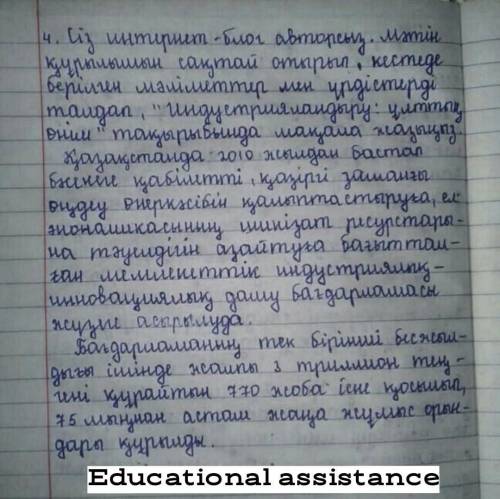 4. Сіз интирнет-блог авторсыз. Мәтін
құрылымын сақтай отырып, кестеде
берілген мәліметтер мен үрдістерді
талдап, "Индустрияландыру: ұлттық
өнім" тақырыбында мақала жазыңыз.
Қазақстанда 2010 жылдан бастап
бәсекеге қабілетті, қазіргі заманғы
өңдеу өнеркәсібін қалыптастыруға, ел
экономикасының шикізат ресурстары-
на тәуелдігін азайтуға бағыттал-
ған мемлекеттік индустриялық-
инновациялық даму бағдарламасы
жүзеге асырылуда.
Бағдарламаның тек бірінші бесжыл-
дығы ішінде жалпы 3 триллион тең-
гені құрайтын 770 жоба іске қосылып,
75 мыңнан астам жаңа жұмыс орын-
дары құрылды.
Educational assistance